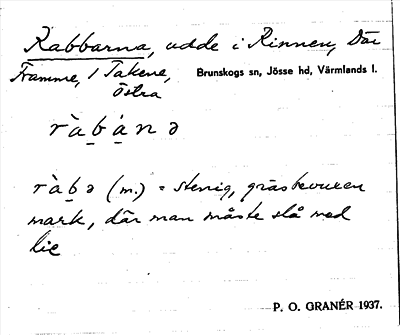 Rabbarna, udde i Rinnen, Där
Framme, 1 Takene, Brunskogs sn, Jösse hd, Värmlands l.
östra
ràḇáṉə
ràḇə (m.) = stenig, gräsbevuxen
mark, där man måste slå med
lie
P. O. GRANÉR 1937.